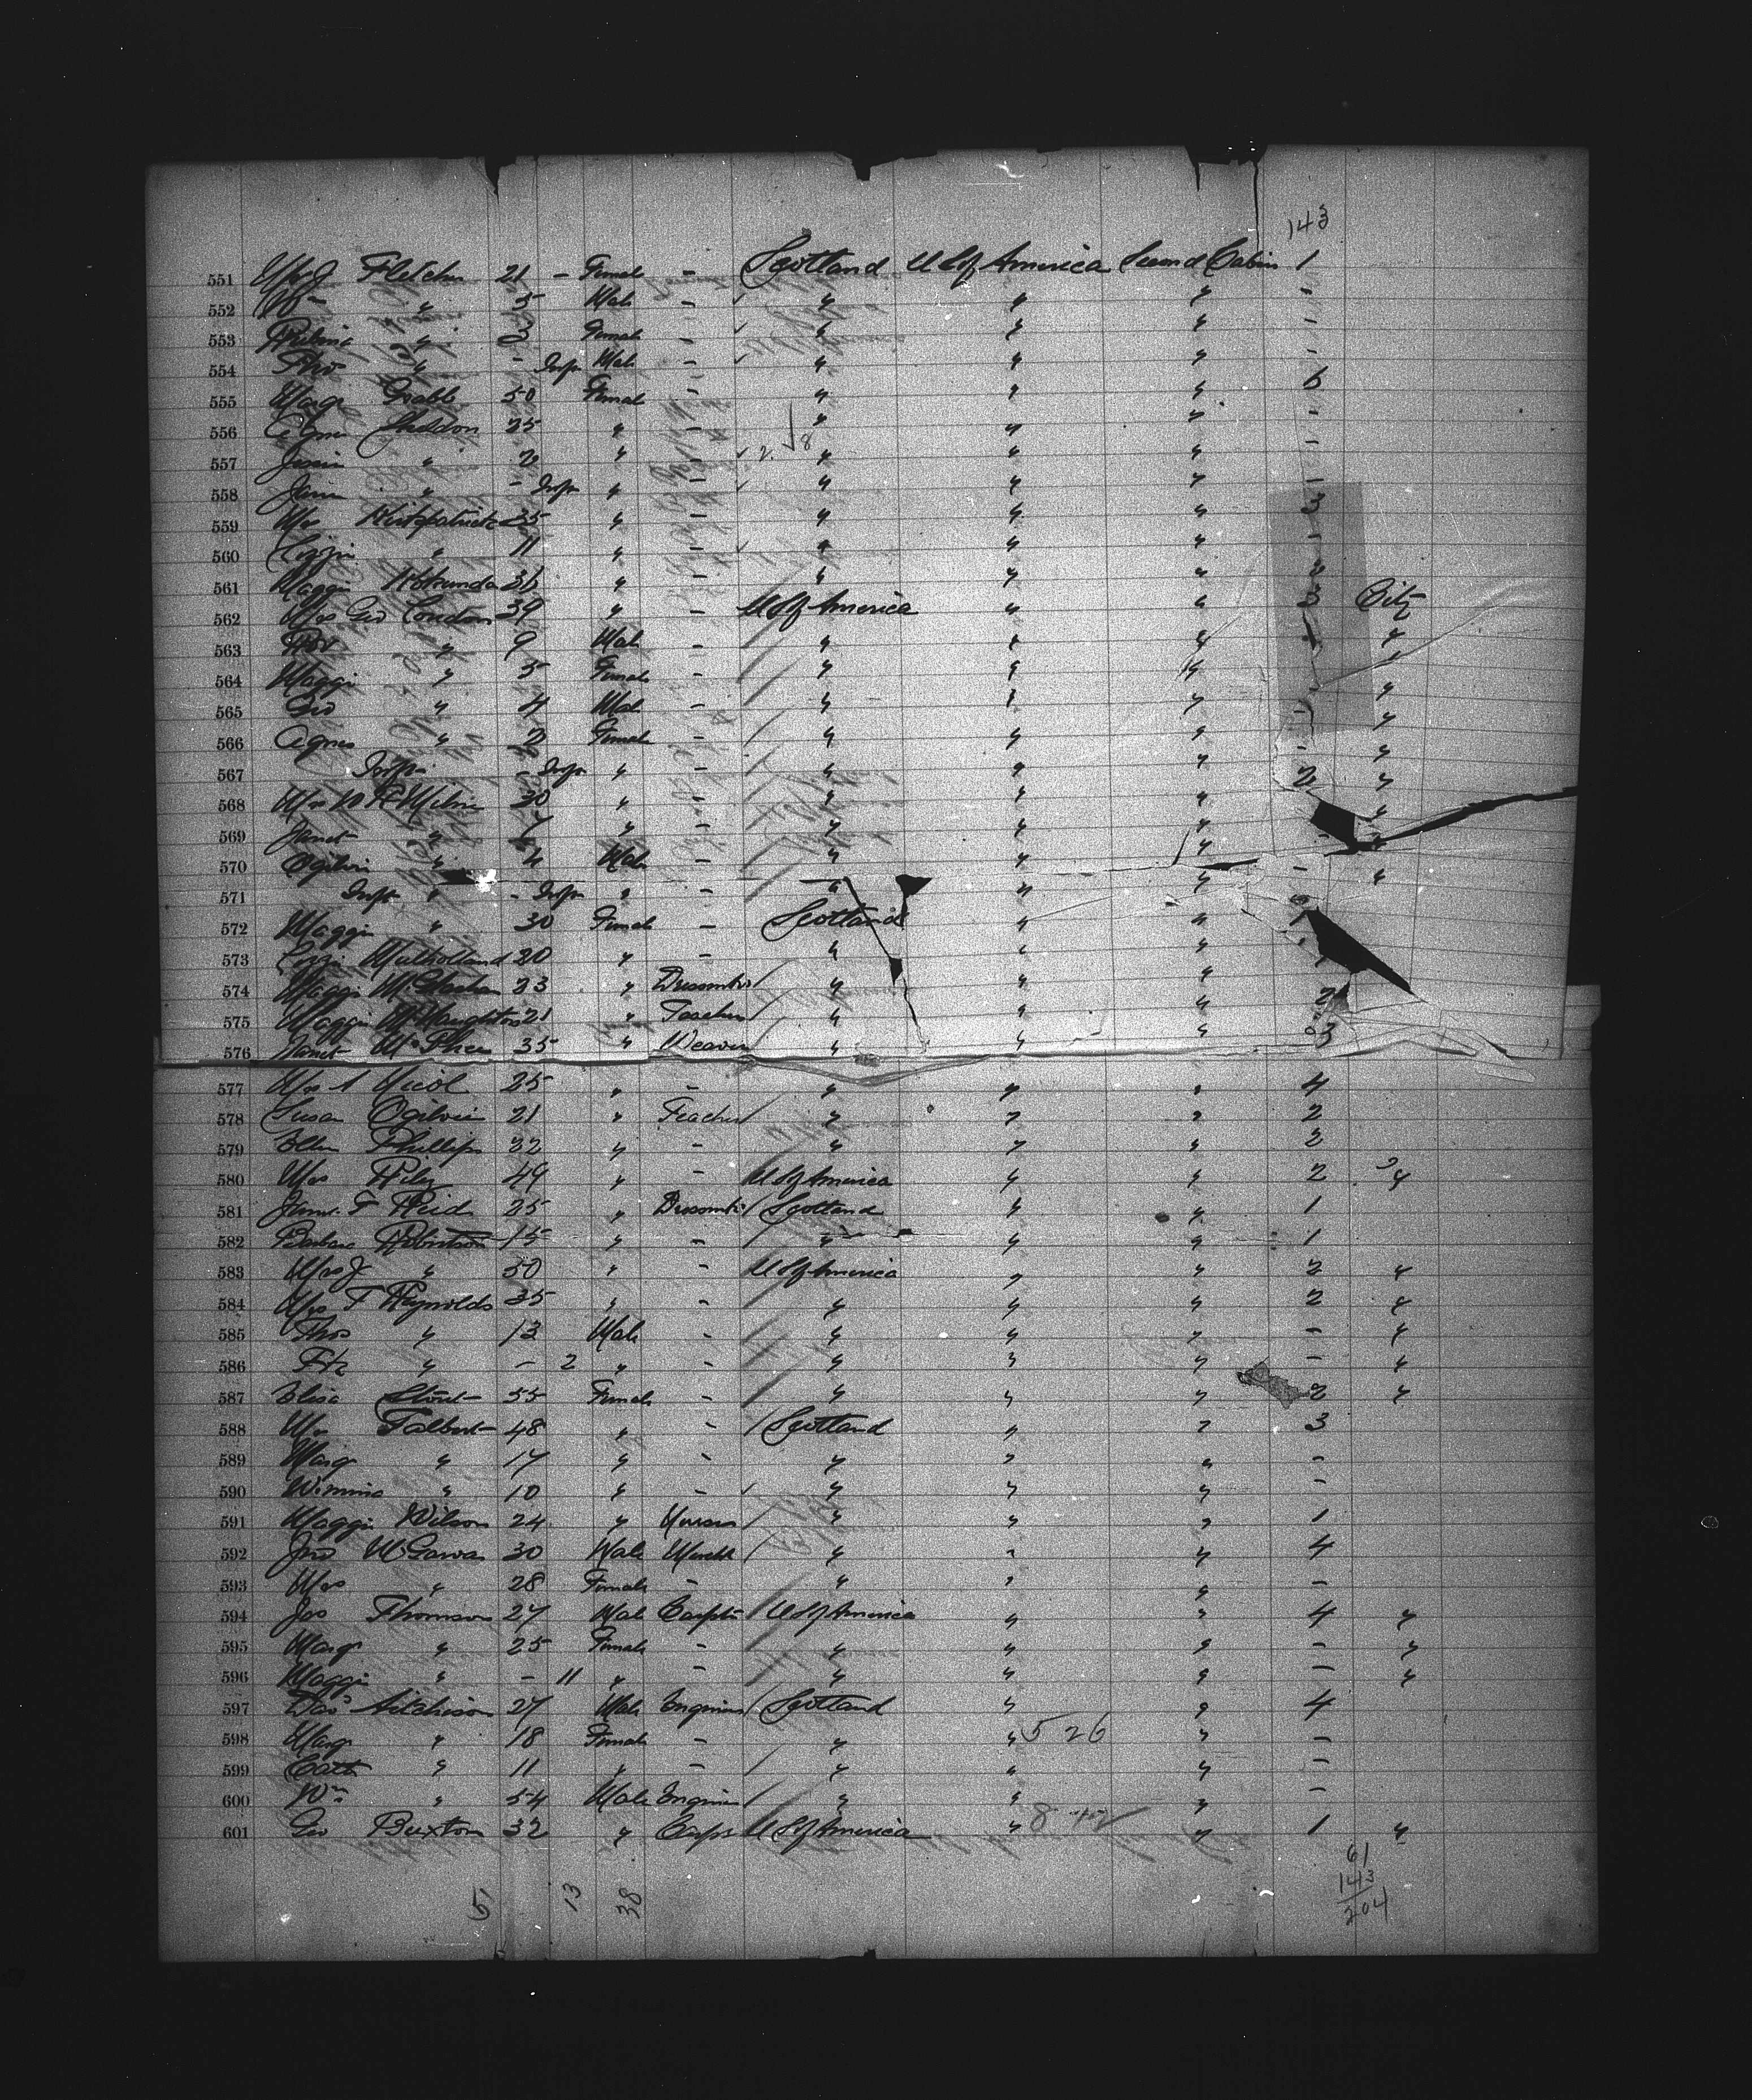 143
551 Mrs J Fletcher 21 - Female - Scotland U S of America Second Cabin 1
552 Wm " 5 Male - " " " -
553 " 3 Female - " " " -
554 Thos " - Inft Male - " " " -
555 Marg Grabb 50 Female - " " " 6
556 Agnes Sheddon 25 " - " " " -
557 Jessie " 2 " - " " " -
558 Janie " - Inft " - " " " 1
559 Mrs Kirkpatrick 25 " - " " " 3
560 Lizzie " 11 " - " " " -
561 Maggie 36 " - " " "
562 Mrs Geo Condon 39 " - U S of America " " 3 Citz
563 Rob " 9 Male - " " " - "
564 Maggie " 5 Female - " " " "
565 Geo " 4 Male - " " " - "
566 Agnes " 2 Female - " " " - "
567 " - Inft " - " " " - "
568 Mrs W R Milne 30 " - " " " 2 "
569 Janet " 7 " - " " " - "
570 Ogilvie " 4 Male - " " " - "
571 Inft " - Inft " - " " " - "
572 Maggie " 30 Female - Scotland " " 1
573 Lizzie Mulholland 20 " - " " " 1
574 Maggie McGlashan 33 " Dressmkr " " " 2
575 Maggie McNaughton 21 " Teacher " " " 2
576 Janet McPhee 35 " Weaver " " " 3
577 Mrs A Nicol 25 " - " " " 4
578 Susan Ogilvie 21 " Teacher " " " 2
579 Ellen Phillips 22 " - " " " 2
580 Mrs Riley 49 " - U S of America " " 2 "
581 F Reid 25 " Dressmkr Scotland " " 1
582 Barbara Robertson 15 " - " " " 1
583 Mrs J " 50 " - U S of America " " 2 "
584 Mrs F Reynolds 35 " - " " " 2 "
585 Thos " 13 Male - " " " - "
586 " - 2 " - " " " - "
587 Eliza 55 Female - " " " 2 "
588 Mrs Talbert 48 " - Scotland " " 3
589 Marg " 17 " - " " " -
590 " 10 " - " " " -
591 Maggie Wilson 24 " Nurse " " " 1
592 Jno McGowan 30 Male Mercht " " " 4
593 Mrs " 28 Female - " " " -
594 Jas Thomson 27 Male Carptr U S of America " " 4 "
595 Marg " 25 Female - " " " - "
596 Maggie " - 11 " - " " " - "
597 Dad Aitchison 27 Male Engineer Scotland " " 4
598 Marg " 18 Female - " " 5 26 " -
599 Cath " 11 " - " " " -
600 Wm " 54 Male Engineer " " " -
601 Geo Buxton 32 " Carpr U S of America " " 1 "
61
143
204
5 13 38